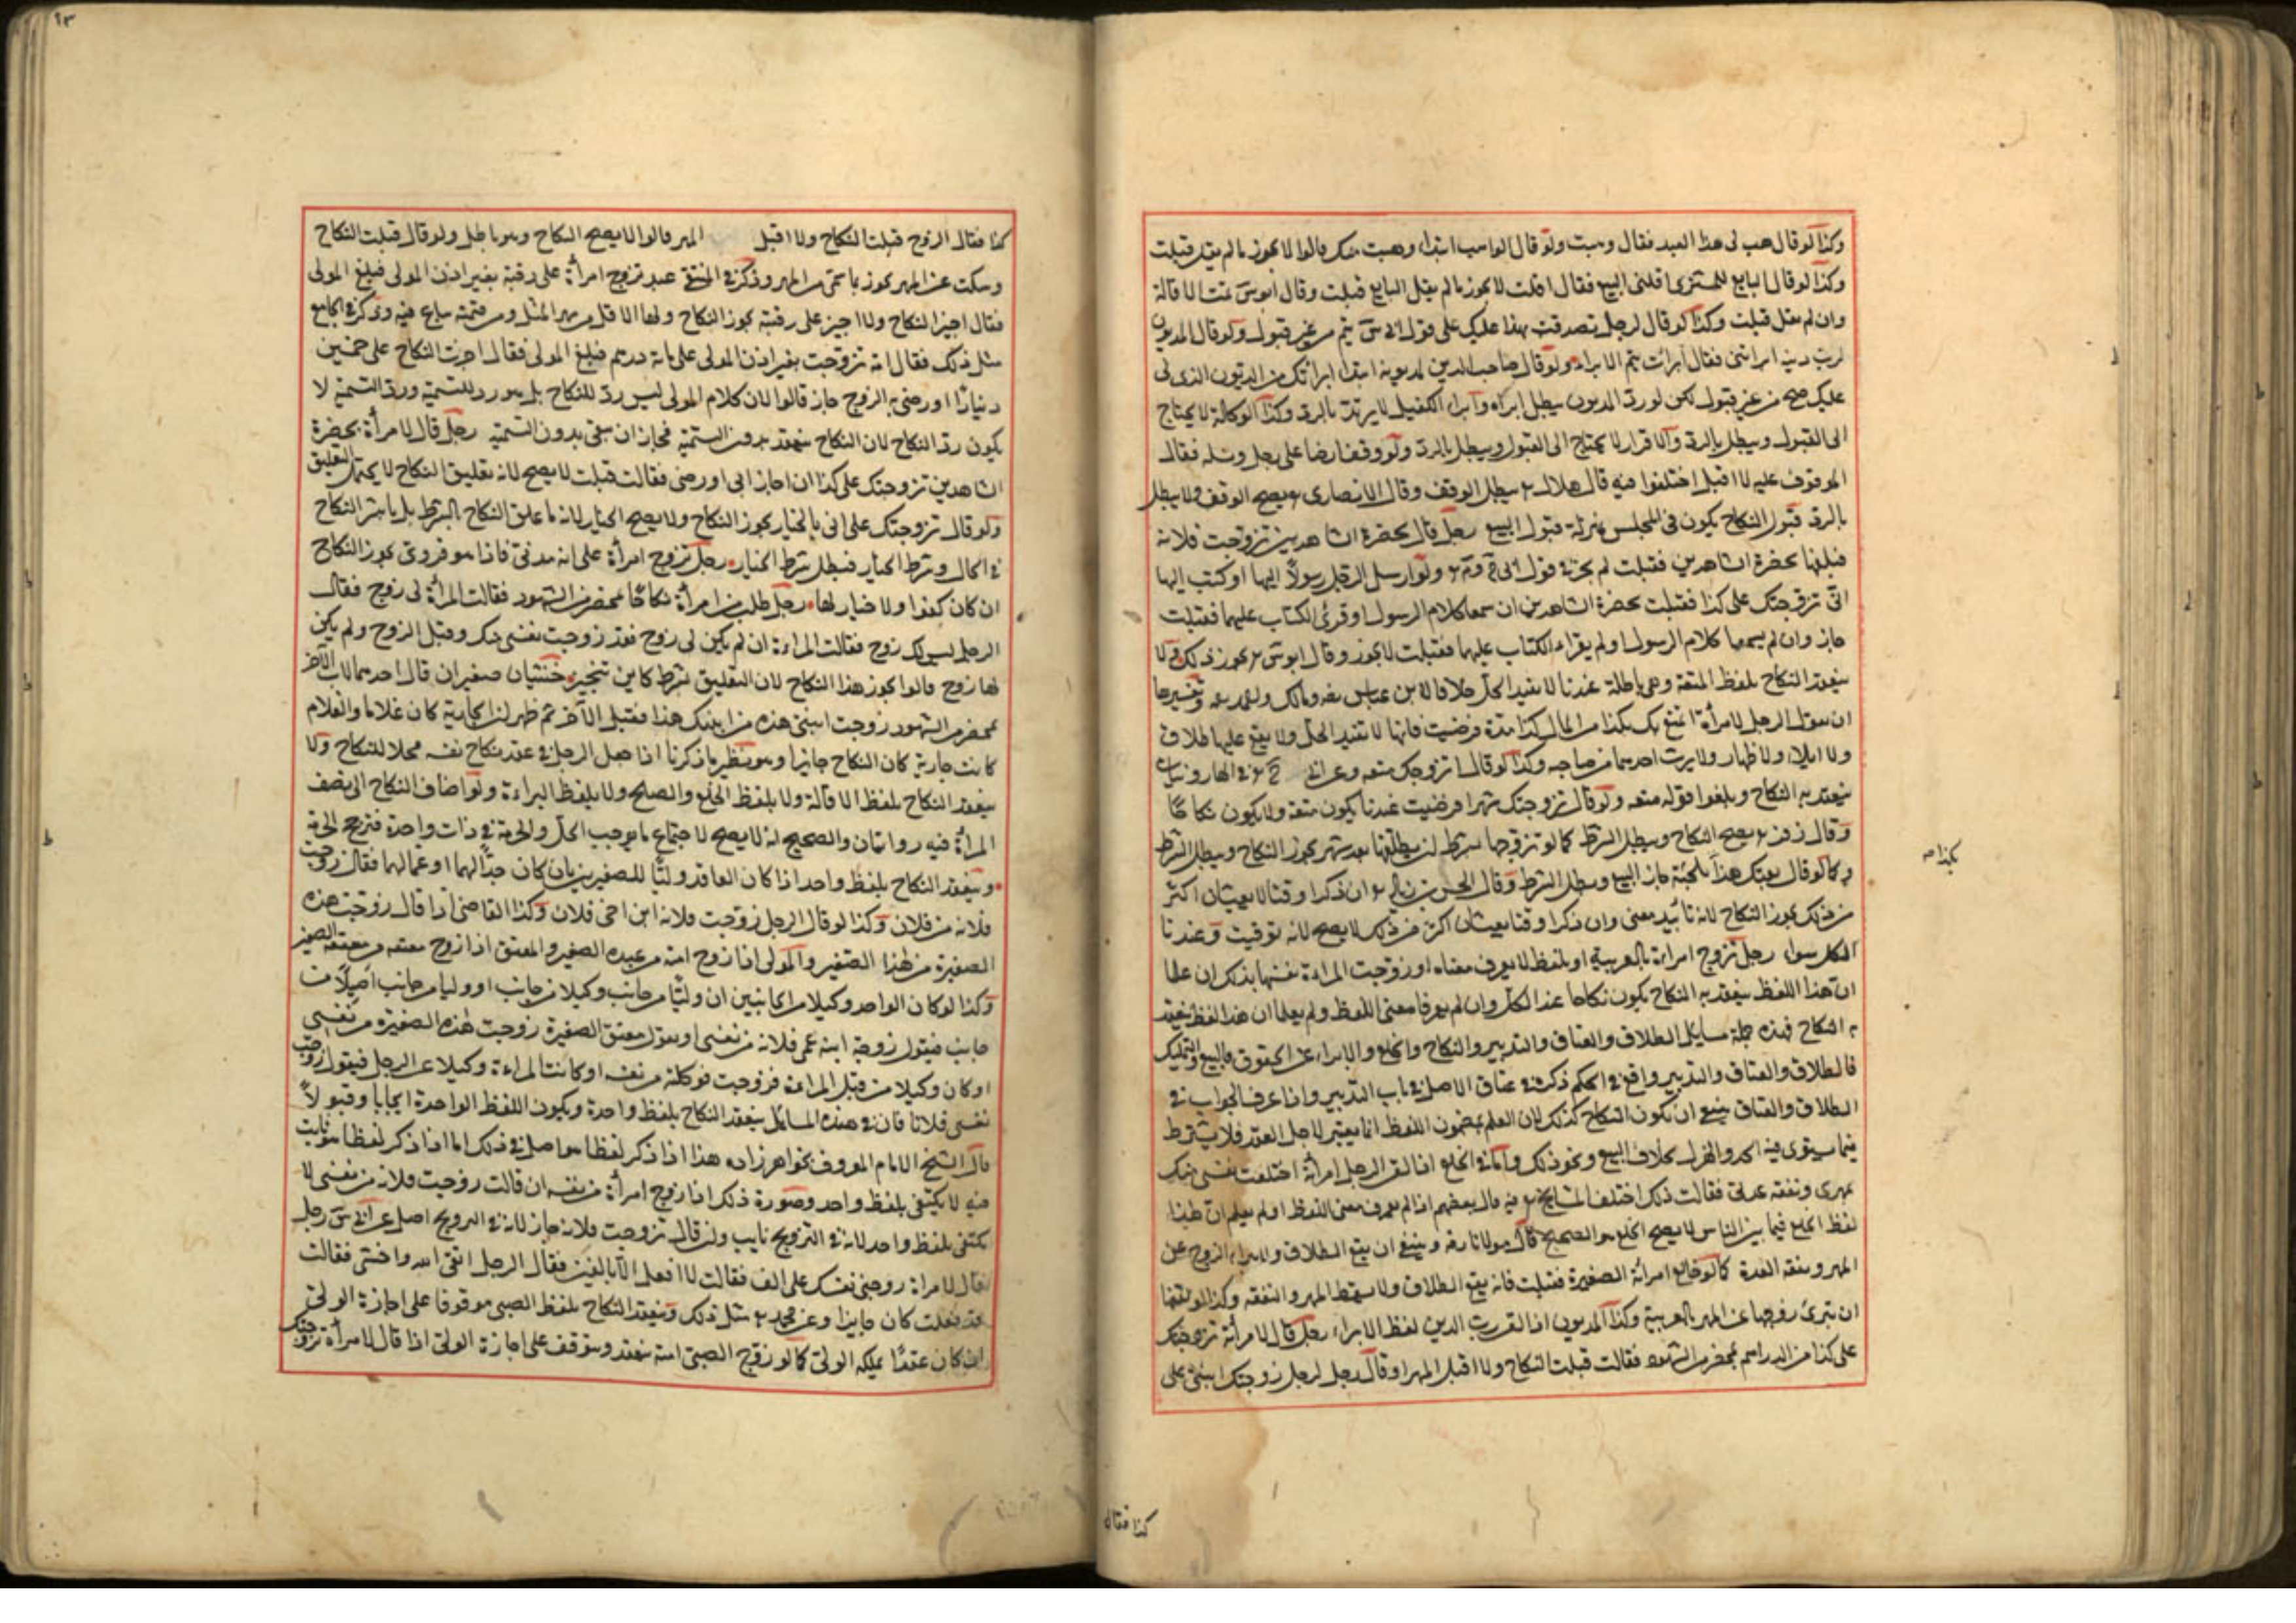 وكذا لو قال هب لى هذا العبد فقال وهبت ولو قال الواهب ابتداء وهبت منك قالوا لا يجوز ما لم يقل قبلت
وكذا لو قال البايع للمشترى اقلنى البيع فقال اقلت لا يجوز ما لم يقل البايع قبلت وقال ابو س تمت الاقالة
وان لم يقل قبلت وكذا لو قال لرجل تصدقت بهذا عليك على قول ابى س يتم من غير قبول ولو قال المديون
لرب دينه ابرأتنى فقال ابرأت يتم الابراء ولو قال صاحب الدين لمديونه ابتداء ابرأتك من الديون الذى لى
عليك صح من غير قبول لكن لو رد المديون يبطل ابراه وابراء الكفيل لا يرتد بالرد وكذا الوكالة لا يحتاج
الى القبول ويبطل بالرد والاقرار لا يحتاج الى القبول ويبطل بالرد ولو وقف ارضا على رجل ونسله فقال
الموقوف عليه لا اقبل اختلفوا فيه قال هلال يبطل الوقف وقال الانصارى يصح الوقف ولا يبطل
بالرد قبول النكاح يكون فى المجلس بمنزلة قبول البيع رجل قال بحضرة الشاهدين تزوجت فلانة
فبلغها بحضرة الشاهدين فقبلت لم يجز فى قول ابى ح و م ولو ارسل الرجل رسولا اليها او كتب اليها
انى تزوجتك على كذا فقبلت بحضرة الشاهدين ان سمعا كلام الرسول او قرئ الكتاب عليهما فقبلت
جاز وان لم يسمعا كلام الرسول ولم يقراء الكتاب عليهما فقبلت لا يجوز وقال ابو س يجوز ذلك ولا
ينعقد النكاح بلفظ المتعة وهى باطلة عندنا لا يفيد الحل خلافا لابن عباس ومالك وتفسيرها
ان يقول الرجل لامرأة اتمتع بك بكذا من المال كذا مدة فرضيت فانها لا تفيد الحل ولا يقع عليها طلاق
ولا ايلاء ولا ظهار ولا يرث احدهما من صاحبه وكذا لو قال اتزوجك متعة وعن ابى ح فى الهارونيات
ينعقد به النكاح ويلغوا قوله متعة ولو قال تزوجتك شهرا فرضيت عندنا يكون متعة ولا يكون نكاحا
وقال زفر يصح النكاح ويبطل الشرط كما لو تزوجها بشرط ان يطلقها بعد شهر يجوز النكاح ويبطل الشرط
وكما لو قال بعتك هذا تلجئة جاز البيع وبطل الشرط وقال الحسن بن زياد ان ذكرا وقتا لا يعيشان اكثر
من ذلك يجوز النكاح لانه تأبيد معنى وان ذكرا وقتا يعيشان اكثر من ذلك لا يصح لانه توقيت وعندنا
الكل سواء رجل تزوج امراءة بالعربية او بلفظ لا يعرف معناه او زوجت المراءة نفسها بذلك ان علما
ان هذا اللفظ ينعقد به النكاح يكون نكاحا عند الكل وان لم يعرفا معنى اللفظ ولم يعلما ان هذا لفظ ينعقد
به النكاح فهذه جملة مسايل الطلاق والعتاق والتدبير والنكاح والخلع والابراء عن الحقوق والبيع والتمليك
فالطلاق والعتاق والتدبير واقع فى الحكم ذكره فى عتاق الاصل فى باب التدبير واذا عرف الجواب فى
الطلاق والعتاق ينبغى ان يكون النكاح كذلك لان العلم بمضمون اللفظ انما يعتبر لاجل القصد فلا يشترط
فيما يستوى فيه الجد والهزل بخلاف البيع ونحو ذلك واما فى الخلع اذا لقن الرجل امرأة اختلعت نفسى منك
بمهرى ونفقة عدتى فقالت ذلك اختلف المشايخ فيه قال بعضهم اذا لم تعرف معنى اللفظ او لم يعلم ان هذا
لفظ الخلع فيما بين الناس لا يصح الخلع هو الصحيح قال مولانا رضه وينبغى ان يقع الطلاق ولا يبراء الزوج عن
المهر ونفقة العدة كما لو خالع امرأته الصغيرة فقبلت فانه يقع الطلاق ولا يسقط المهر والنفقة وكذا لو لقنها
ان تبرئ زوجها عن المهر بالعربية وكذا المديون اذا لقن رب الدين لفظ الابراء رجل قال لامرأة تزوجتك
على كذا من الدراهم بمحضر من الشهود فقالت قبلت النكاح ولا اقبل المهر او قال رجل لرجل زوجتك ابنتى على
كذا فقال
١٣
كذا فقال الزوج قبلت النكاح ولا اقبل المهر قالوا لا يصح النكاح وهو باطل ولو قال قبلت النكاح
وسكت عن المهر يجوز بما سمى من المهر وذكر فى المنتقى عبد تزوج امرأة على رقبته بغير اذن المولى فبلغ المولى
فقال اجيز النكاح ولا اجيز على رقبته يجوز النكاح ولها الاقل من مهر المثل ومن قيمته يباع فيه وذكر فى الجامع
مثل ذلك فقال امة تزوجت بغير اذن المولى على مائة درهم فبلغ المولى فقال اجزت النكاح على خمسين
دينارا او رضى به الزوج جاز قالوا لان كلام المولى ليس رد للنكاح بل هو رد للتسمية ورد التسمية لا
يكون رد النكاح لان النكاح ينعقد بدون التسمية فجاز ان يبقى بدون التسمية رجل قال لامرأة بحضرة
الشاهدين تزوجتك على كذا ان اجاز ابى او رضى فقالت قبلت لا يصح لانه تعليق النكاح لا يحتمل التعليق
ولو قال تزوجتك على انى بالخيار يجوز النكاح ولا يصح الخيار لانه ما علق النكاح بالشرط بل باشر النكاح
فى الحال وشرط الخيار فيبطل شرط الخيار رجل تزوج امرأة على انه مدنى فاذا هو قروى يجوز النكاح
ان كان كفوا ولا خيار لها رجل طلب من امرأة نكاحا بمحضر من الشهود فقالت المرأة لى زوج فقال
الرجل ليس لك زوج فقالت المراءة ان لم يكن لى زوج فقد زوجت نفسى منك وقبل الزوج ولم يكن
لها زوج قالوا يجوز هذا النكاح لان التعليق بشرط كاين تنجيز خنثيان صغيران قال احدهما لاب الآخر
بمحضر من الشهود زوجت ابنتى هذه من ابنك هذا فقبل الآخر ثم ظهر ان الجارية كان غلاما والغلام
كانت جارية كان النكاح جايزا وهو نظير ما ذكرنا اذا جعل الرجل فى عقد نكاح نفسه محلا للنكاح ولا
ينعقد النكاح بلفظ الاقالة ولا بلفظ الخلع والصلح ولا بلفظ البراءة ولو اضاف النكاح الى نصف
المرأة فيه روايتان والصحيح انه لا يصح لاجتماع ما يوجب الحل والحرمة فى ذات واحدة فترجح الحرمة
وينعقد النكاح بلفظ واحد اذا كان العاقد وليا للصغيرين بان كان جدا لهما او عما لهما فقال زوجت
فلانة من فلان وكذا لو قال الرجل زوجت فلانة ابن اخى فلان وكذا القاضى اذا قال زوجت هذه
الصغيرة من هذا الصغير والمولى اذا زوج امته من عبده الصغير والمعتق اذا زوج معتقه من معتقته الصغير
وكذا لو كان الواحد وكيلا من الجانبين ان وليا من جانب وكيلا من جانب او وليا من جانب اصيلا من
جانب فيقول زوجت ابنة عمى فلانة من نفسى او يقول معتق الصغيرة زوجت هذه الصغيرة من نفسى
او كان وكيلا من قبل المراءة فزوجت موكلته من نفسه او كانت المراءة وكيلا عن الرجل فيقول زوجت
نفسى فلانا فان فى هذه المسائل ينعقد النكاح بلفظ واحدة ويكون اللفظ الواحدة ايجابا وقبولا
قال الشيخ الامام المعروف بخواهرزاده هذا اذا ذكر لفظا هو اصل فى ذلك اما اذا ذكر لفظا هو نايب
فيه لا يكتفى بلفظ واحد وصورة ذلك اذا زوج امرأة من نفسه ان قالت زوجت فلانة من نفسى لا
يكتفى بلفظ واحد لانه فى التزويج نايب وان قال تزوجت فلانة جاز لانه فى التزويج اصل عن ابى س رجل
قال لامراة زوجنى نفسك على الف فقالت لا افعل الا بالفين فقال الرجل اتقى الله واخشى فقالت
قد فعلت كان جايزا وعن محمد مثل ذلك وينعقد النكاح بلفظ الصبى موقوفا على اجازة الولى
ان كان عقدا يملكه الولى كما لو زوج الصبى امته ينعقد ويتوقف على اجازة الولى اذا قال لامرأة تزوجتك